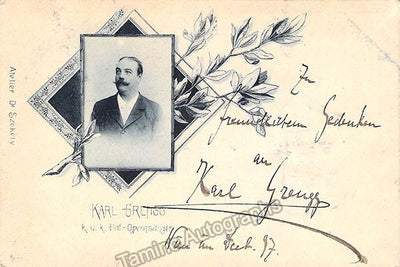 Atelier Dr Székely
KARL GRENGG
K. u. k. Hof-Opernsänger
Zum
freundlichem Gedenken
an
Karl Grengg
Wien 97.
Tamino Autographs